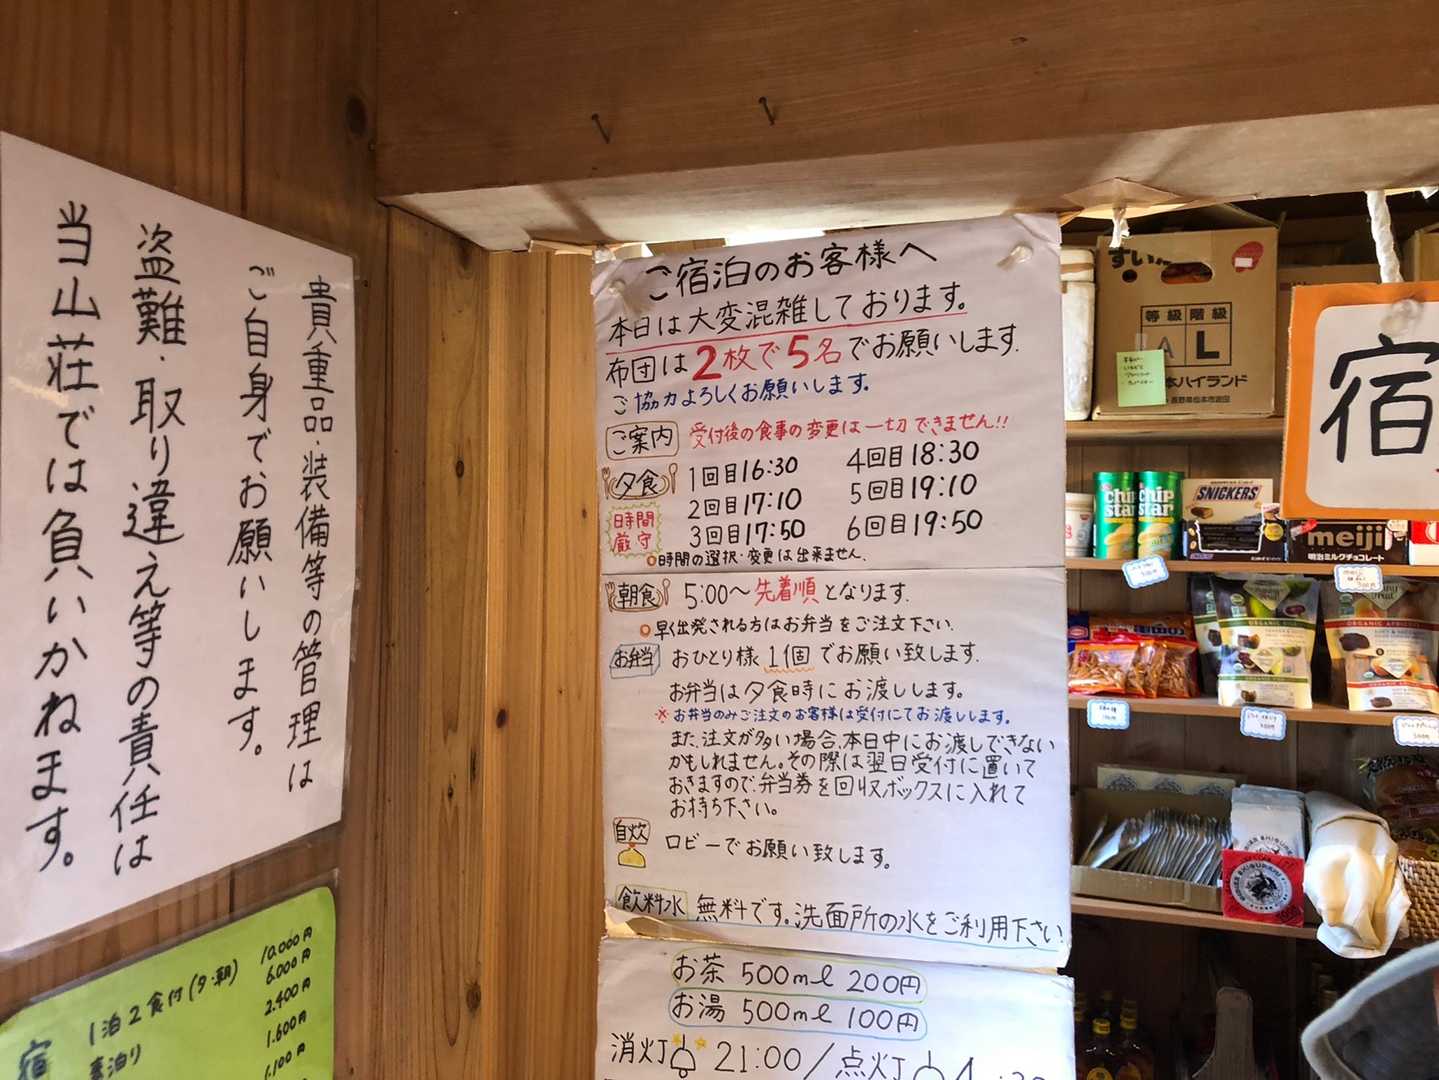 貴重品・装備等の管理は
ご自身でお願いします。
盗難・取り違え等の責任は
当山荘では負いかねます。
宿
1泊2食付(夕・朝) 10.000円
素泊り 6.000円
2.400円
1.600円
1.100円
ご宿泊のお客様へ
本日は大変混雑しております。
布団は2枚で5名でお願いします.
ご協力よろしくお願いします。
ご案内 受付後の食事の変更は一切できません!!
夕食 1回目16:30 4回目18:30
2回目17:10 5回目19:10
時間厳守 3回目17:50 6回目19:50
時間の選択・変更は出来ません.
朝食 5:00〜先着順となります.
早く出発される方はお弁当をご注文下さい.
お弁当 おひとり様1個でお願い致します.
お弁当は夕食時にお渡しします。
※お弁当のみご注文のお客様は受付にてお渡しします。
また、注文が多い場合、本日中にお渡しできない
かもしれません。その際は翌日受付に置いて
おきますので、弁当券を回収ボックスに入れて
お持ち下さい。
自炊 ロビーでお願い致します。
飲料水 無料です。洗面所の水をご利用下さい
お茶 500ml 200円
お湯 500ml 100円
消灯 21:00/点灯
すい
等級 階級
A L
本ハイランド
宿
chip star
chip star
SNICKERS
meiji
明治ミルクチョコレート
ORGANIC
ORGANIC